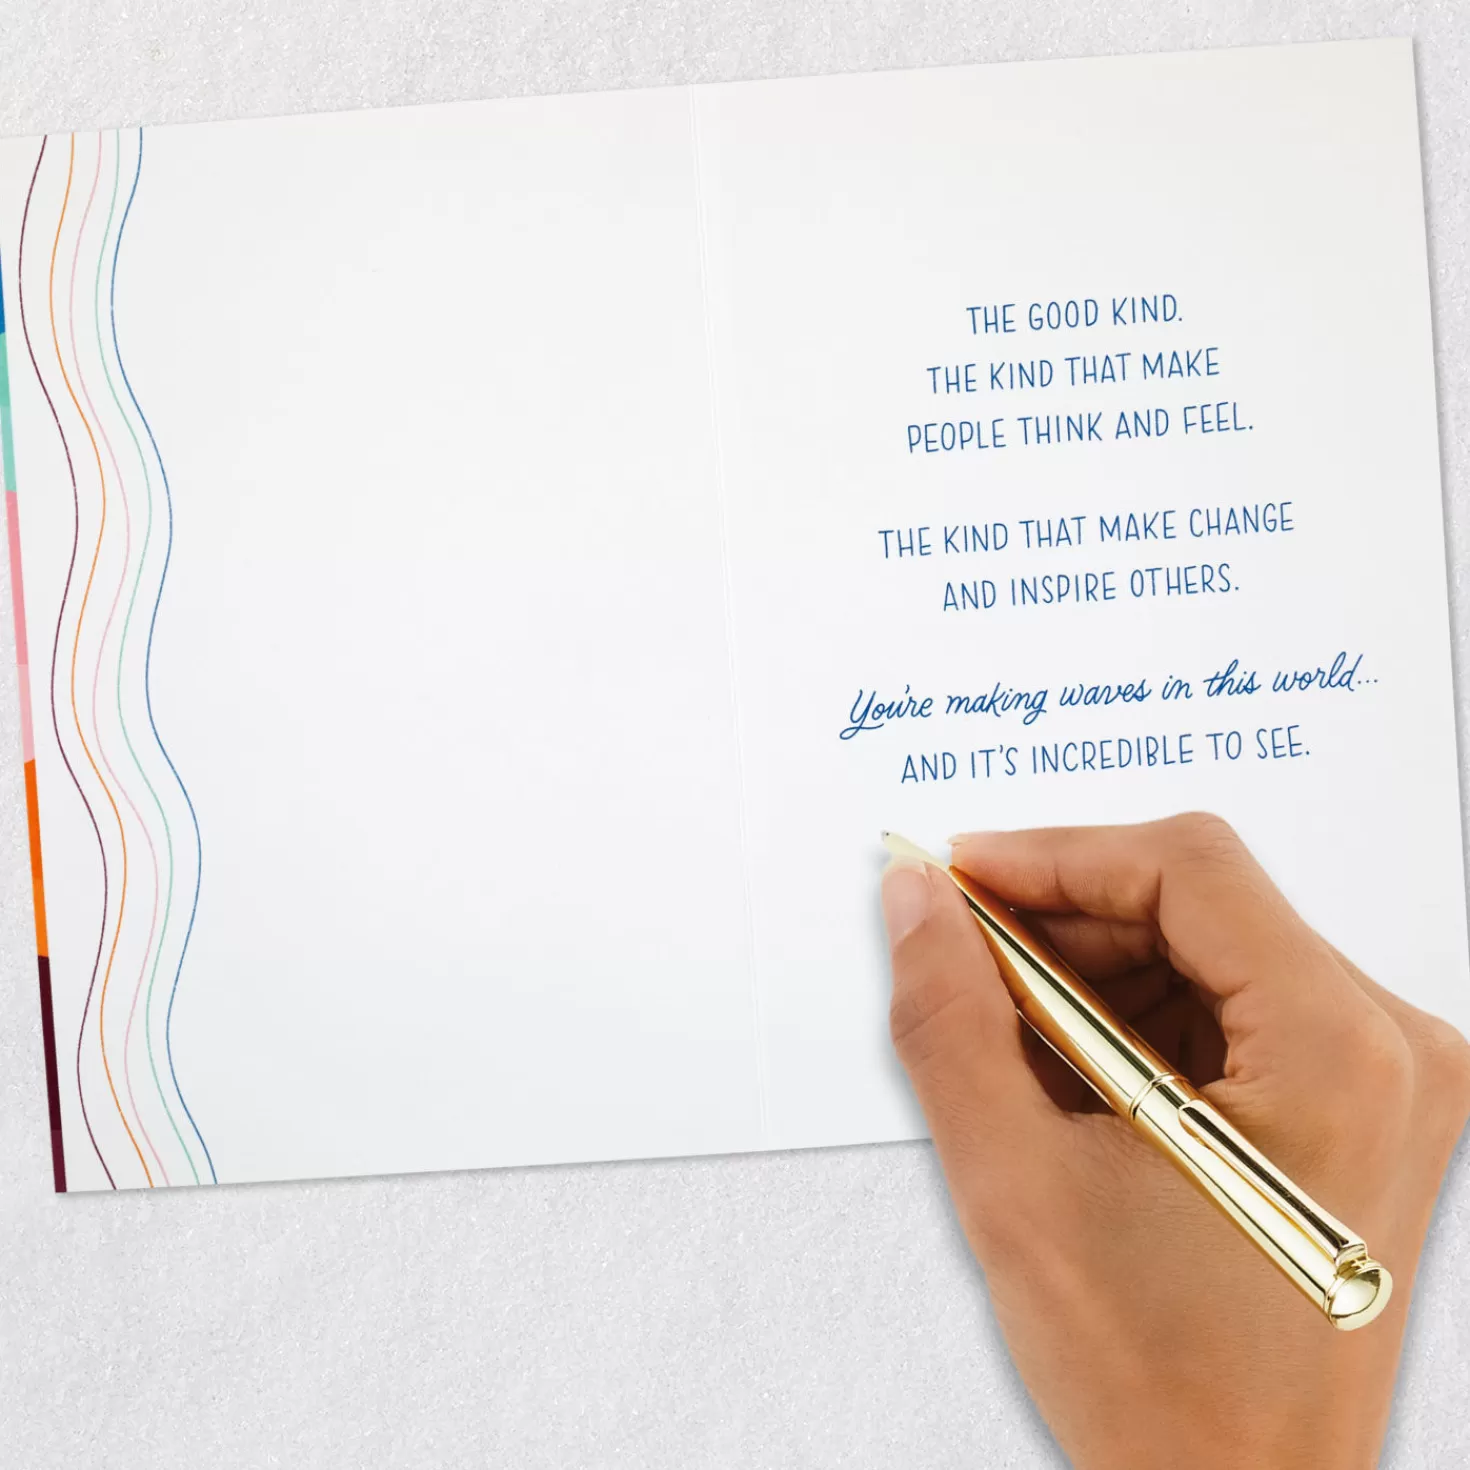 THE GOOD KIND.
THE KIND THAT MAKE
PEOPLE THINK AND FEEL.
THE KIND THAT MAKE CHANGE
AND INSPIRE OTHERS.
You're making waves in this world...
AND IT'S INCREDIBLE TO SEE.